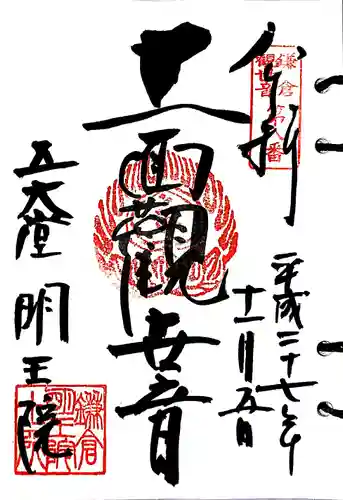 奉拝
鎌倉第八番
観世音
平成二十七年
十一月五日
十一面觀世音
五大堂 明王院
鎌倉
明王院